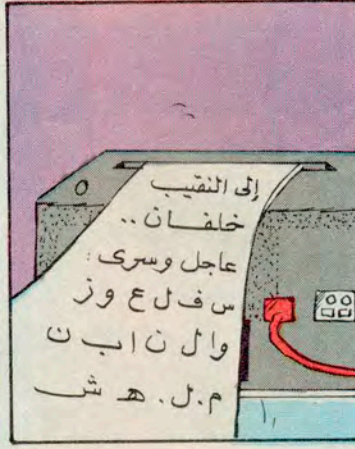 إلى النقيب
خلفان ..
عاجل وسرى :
س ف ل ع و ز
و ا ل ن ا ب ن
م . ل . هـ ش